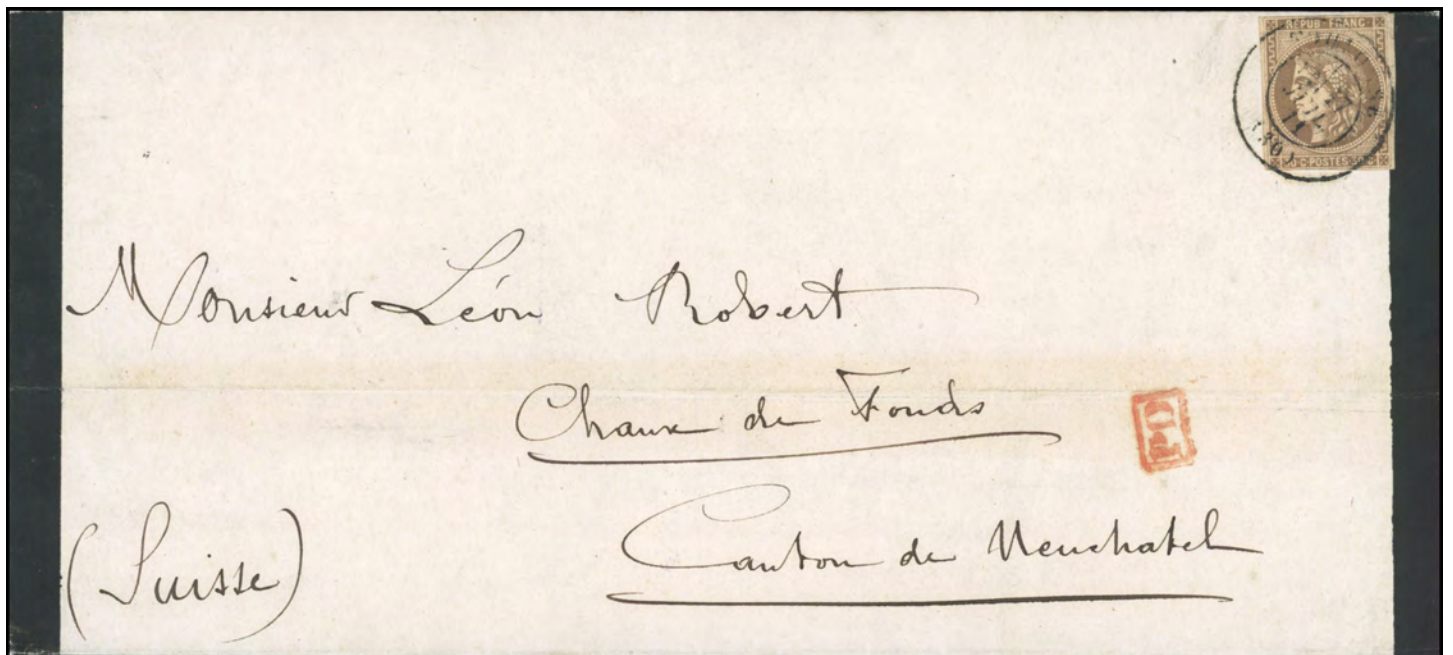 REPUB FRANC
C POSTES
Monsieur Léon Robert
Chaux de Fonds
PD
Canton de Neuchatel
(Suisse)